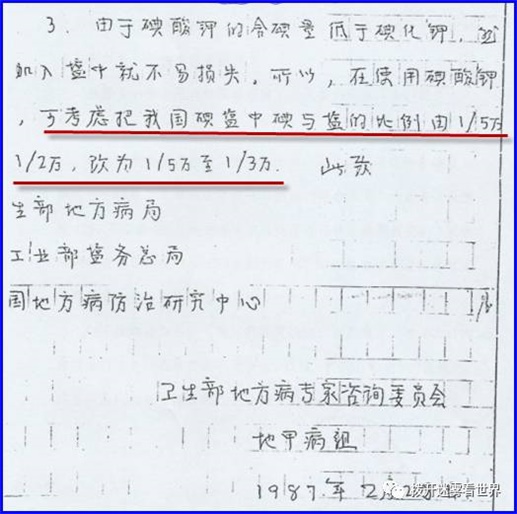 3. 由于碘酸钾的含碘量低于碘化钾,
加入盐中就不易损失,所以,在使用碘酸钾
,可考虑把我国碘盐中碘与盐的比例由1/5万
1/2万,改为1/5万至1/3万. 此致
生部地方病局
工业部盐务总局
国地方病防治研究中心
卫生部地方病专家咨询委员会
地甲病组
1987.年2月2
拨开迷雾看世界